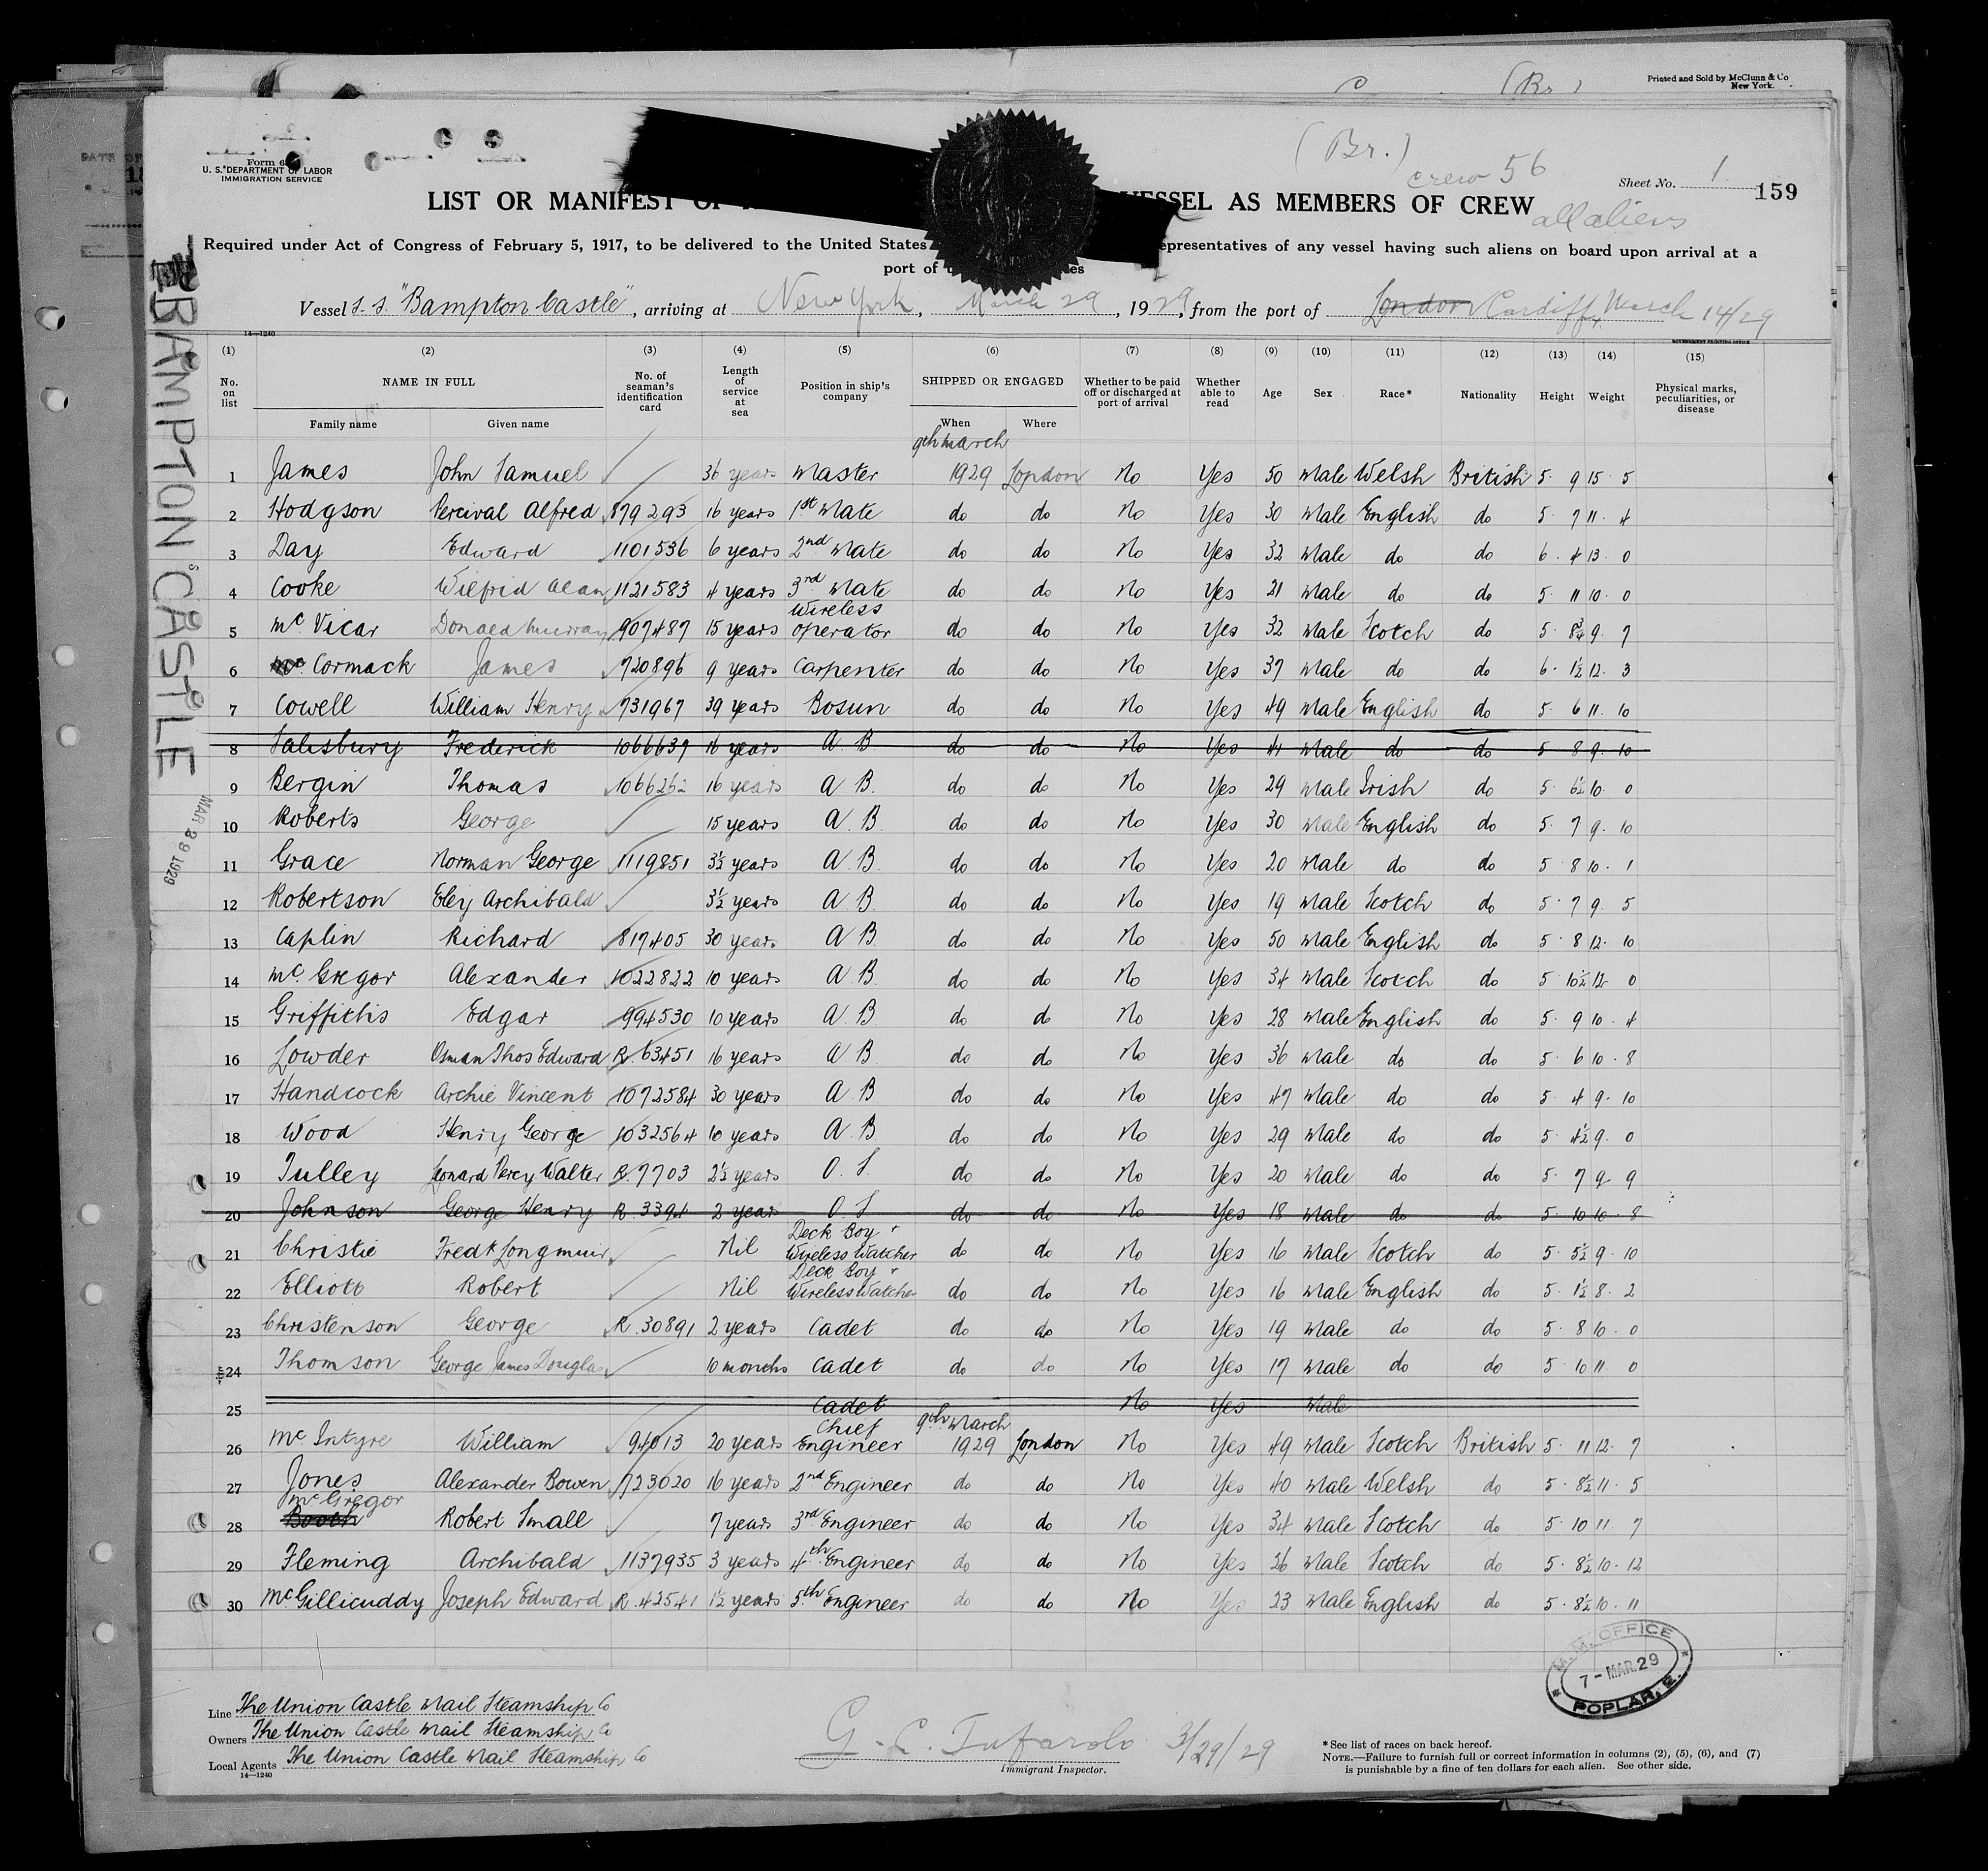 Printed and Sold by McClunn & Co
New York.
(Br.)
Form 6
U. S. DEPARTMENT OF LABOR
IMMIGRATION SERVICE
crew 56
Sheet No. 1
159
LIST OR MANIFEST OF VESSEL AS MEMBERS OF CREW
all aliens
Required under Act of Congress of February 5, 1917, to be delivered to the United States epresentatives of any vessel having such aliens on board upon arrival at a
port of
Vessel S. S. "Bampton Castle", arriving at New York, March 29, 1929, from the port of London Cardiff, March 14/29
14—1240
(1) (2) (3) (4) (5) (6) (7) (8) (9) (10) (11) (12) (13) (14) (15)
No. on list NAME IN FULL Family name Given name No. of seaman's identification card Length of service at sea Position in ship's company SHIPPED OR ENGAGED When Where Whether to be paid off or discharged at port of arrival Whether able to read Age Sex Race* Nationality Height Weight Physical marks, peculiarities, or disease
9th march
1 James John Samuel 36 years Master 1929 London No Yes 50 Male Welsh British 5 9 15 5
2 Hodgson Percival Alfred 879293 16 years 1st Mate do do No Yes 30 Male English do 5 7 11 4
3 Day Edward 1101536 6 years 2nd Mate do do No Yes 32 Male do do 6 4 13 0
4 Cooke Wilfrid Alan 1121583 4 years 3rd Mate do do No Yes 21 Male do do 5 11 10 0
Wireless
5 McVicar Donald Murray 907487 15 years operator do do No Yes 32 Male Scotch do 5 8¾ 9 7
6 Mc Cormack James 720896 9 years Carpenter do do No Yes 37 Male do do 6 1½ 12 3
7 Cowell William Henry 731967 39 years Bosun do do No Yes 49 Male English do 5 6 11 10
8 Salisbury Frederick 1066637 16 years A. B. do do No Yes 41 Male do do 5 8 9 10
9 Bergin Thomas 1066262 16 years A B. do do No Yes 29 Male Irish do 5 6½ 10 0
10 Roberts George 15 years A. B. do do No Yes 30 Male English do 5 7 9 10
11 Grace Norman George 1119851 3½ years A. B. do do No Yes 20 Male do do 5 8 10 1
12 Robertson Eley Archibald 3½ years A B. do do No Yes 19 Male Scotch do 5 7 9 5
13 Caplin Richard 817405 30 years A B. do do No Yes 50 Male English do 5 8 12 10
14 McGregor Alexander 1022822 10 years A B. do do No Yes 34 Male Scotch do 5 10½ 12 0
15 Griffiths Edgar 994530 10 years A. B do do No Yes 28 Male English do 5 9 10 4
16 Lowder Osman Thos Edward R. 63451 16 years A B do do No Yes 36 Male do do 5 6 10 8
17 Handcock Archie Vincent 1072584 30 years A B do do No Yes 47 Male do do 5 4 9 10
18 Wood Henry George 1032564 10 years A. B do do No Yes 29 Male do do 5 4½ 9 0
19 Tulley Leonard Percy Walter R. 7703 2½ years O. S. do do No Yes 20 Male do do 5 7 9 9
20 Johnson George Henry R. 3394 2 years O. S do do No Yes 18 Male do do 5 10 10 8
Deck Boy &
21 Christie Fredk Longmuir Nil Wireless Watcher do do No Yes 16 Male Scotch do 5 5½ 9 10
Deck Boy &
22 Elliott Robert Nil Wireless Watcher do do No Yes 16 Male English do 5 1½ 8 2
23 Christenson George R. 30891 2 years Cadet do do No Yes 19 Male do do 5 8 10 0
24 Thomson George James Douglas 10 months Cadet do do No Yes 17 Male do do 5 10 11 0
25 Cadet No Yes Male
Chief 9th March
26 McIntyre William 94013 20 years Engineer 1929 London No Yes 49 Male Scotch British 5 11 12 7
27 Jones Alexander Bowen 723020 16 years 2nd Engineer do do No Yes 40 Male Welsh do 5 8½ 11 5
McGregor
28 Booth Robert Small 7 years 3rd Engineer do do No Yes 34 Male Scotch do 5 10 11 7
29 Fleming Archibald 1137935 3 years 4th Engineer do do No Yes 26 Male Scotch do 5 8½ 10 12
30 McGillicuddy Joseph Edward R. 42541 1½ years 5th Engineer do do No Yes 23 Male English do 5 8½ 10 11
BAMPTON CASTLE
MAR 29 1929
M. M. OFFICE
7 - MAR. 29
POPLAR, E.
Line The Union Castle Mail Steamship Co
Owners The Union Castle Mail Steamship Co
Local Agents The Union Castle Mail Steamship Co
14—1240
G. L. Tufarolo 3/29/29
Immigrant Inspector.
*See list of races on back hereof.
NOTE.—Failure to furnish full or correct information in columns (2), (5), (6), and (7)
is punishable by a fine of ten dollars for each alien. See other side.